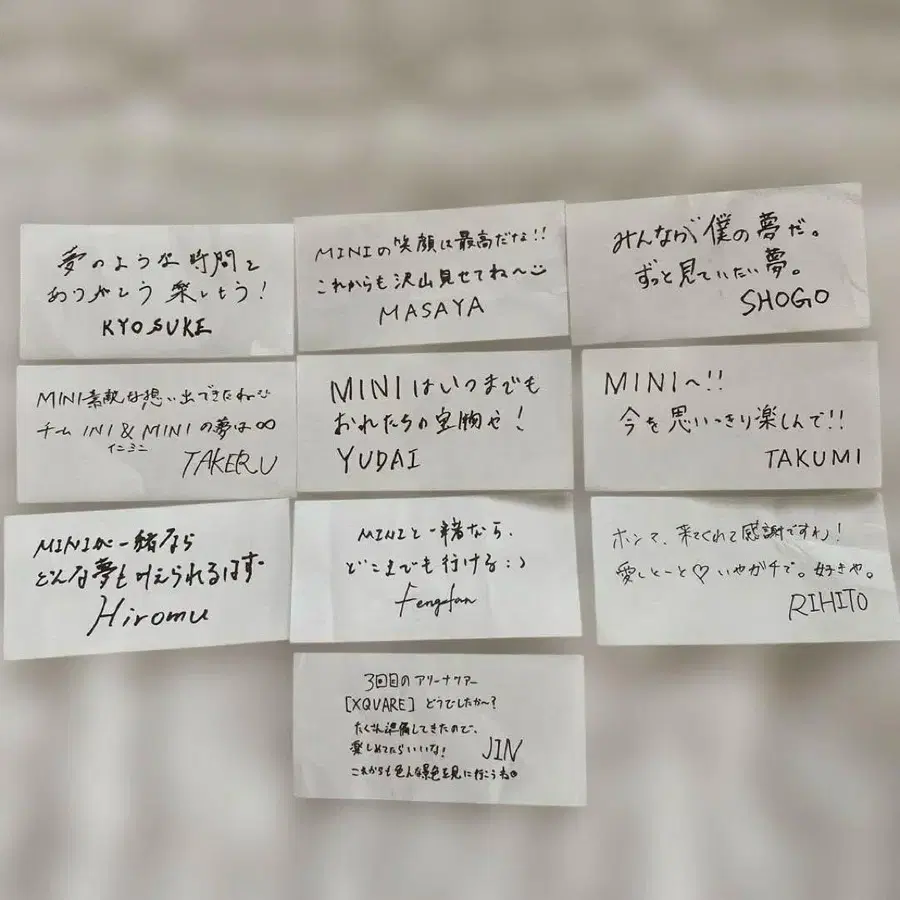 夢のような時間を
ありがとう 楽しもう!
KYOSUKE
MINIの笑顔は最高だな!!
これからも沢山見せてね〜
MASAYA
みんなが僕の夢だ。
ずっと見ていたい夢。
SHOGO
MINI素敵な想い出できたね
チーム INI & MINI の夢は∞
イニミニ
TAKERU
MINIはいつまでも
おれたちの宝物や!
YUDAI
MINIへ!!
今を思いっきり楽しんで!!
TAKUMI
MINIが一緒なら
どんな夢も叶えられるはず
Hiromu
MINIと一緒なら、
どこまでも行ける:)
Fengfan
ホンマ、来てくれて感謝ですわ!
愛しとーと♡いやガチで。好きや。
RIHITO
3回目のアリーナツアー
[XQUARE] どうでしたか〜?
たくさん準備してきたので、
楽しめてたらいいな!
JIN
これからも色んな景色を見に行こうね